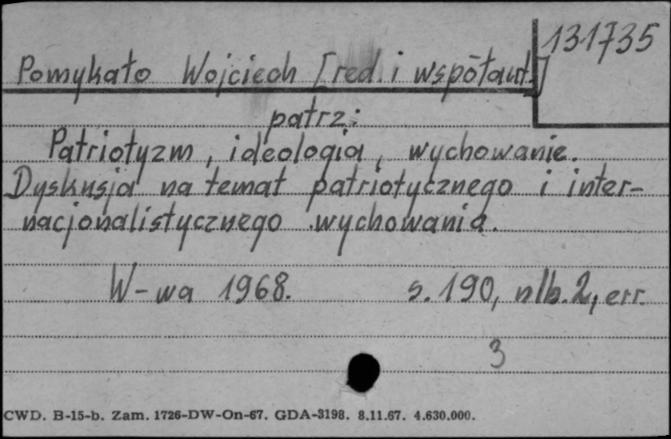 131735
Pomykało Wojciech [red. i współaut.]
patrz:
Patriotyzm, ideologia, wychowanie.
Dyskusja na temat patriotycznego i inter-
nacjonalistycznego wychowania.
W-wa 1968. s. 190, nlb. 2, err.
3
CWD. B-15-b. Zam. 1726-DW-On-67. GDA-3198. 8.11.67. 4.630.000.